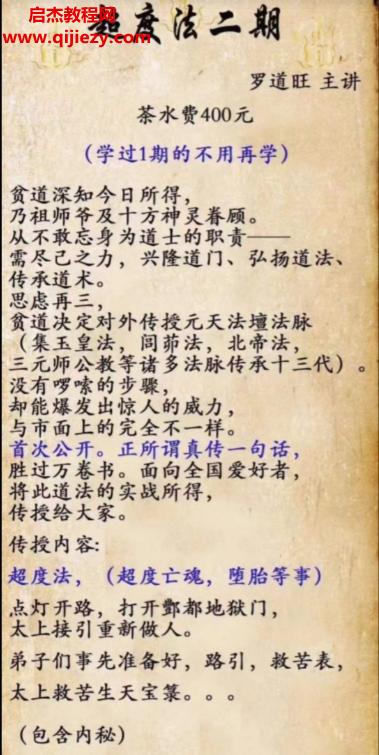 超度法二期
启杰教程网
www.qijiezy.com
罗道旺 主讲
茶水费400元
（学过1期的不用再学）
贫道深知今日所得，
乃祖师爷及十方神灵眷顾。
从不敢忘身为道士的职责——
需尽己之力，兴隆道门、弘扬道法、
传承道术。
思虑再三，
贫道决定对外传授元天法壇法脉
（集玉皇法，闾茆法，北帝法，
三元师公教等诸多法脉传承十三代）。
没有啰嗦的步骤，
却能爆发出惊人的威力，
与市面上的完全不一样。
首次公开。正所谓真传一句话，
胜过万卷书。面向全国爱好者，
将此道法的实战所得，
传授给大家。
传授内容:
超度法，（超度亡魂，堕胎等事）
点灯开路，打开酆都地狱门，
太上接引重新做人。
弟子们事先准备好，路引，救苦表，
太上救苦生天宝箓。。。
（包含内秘）